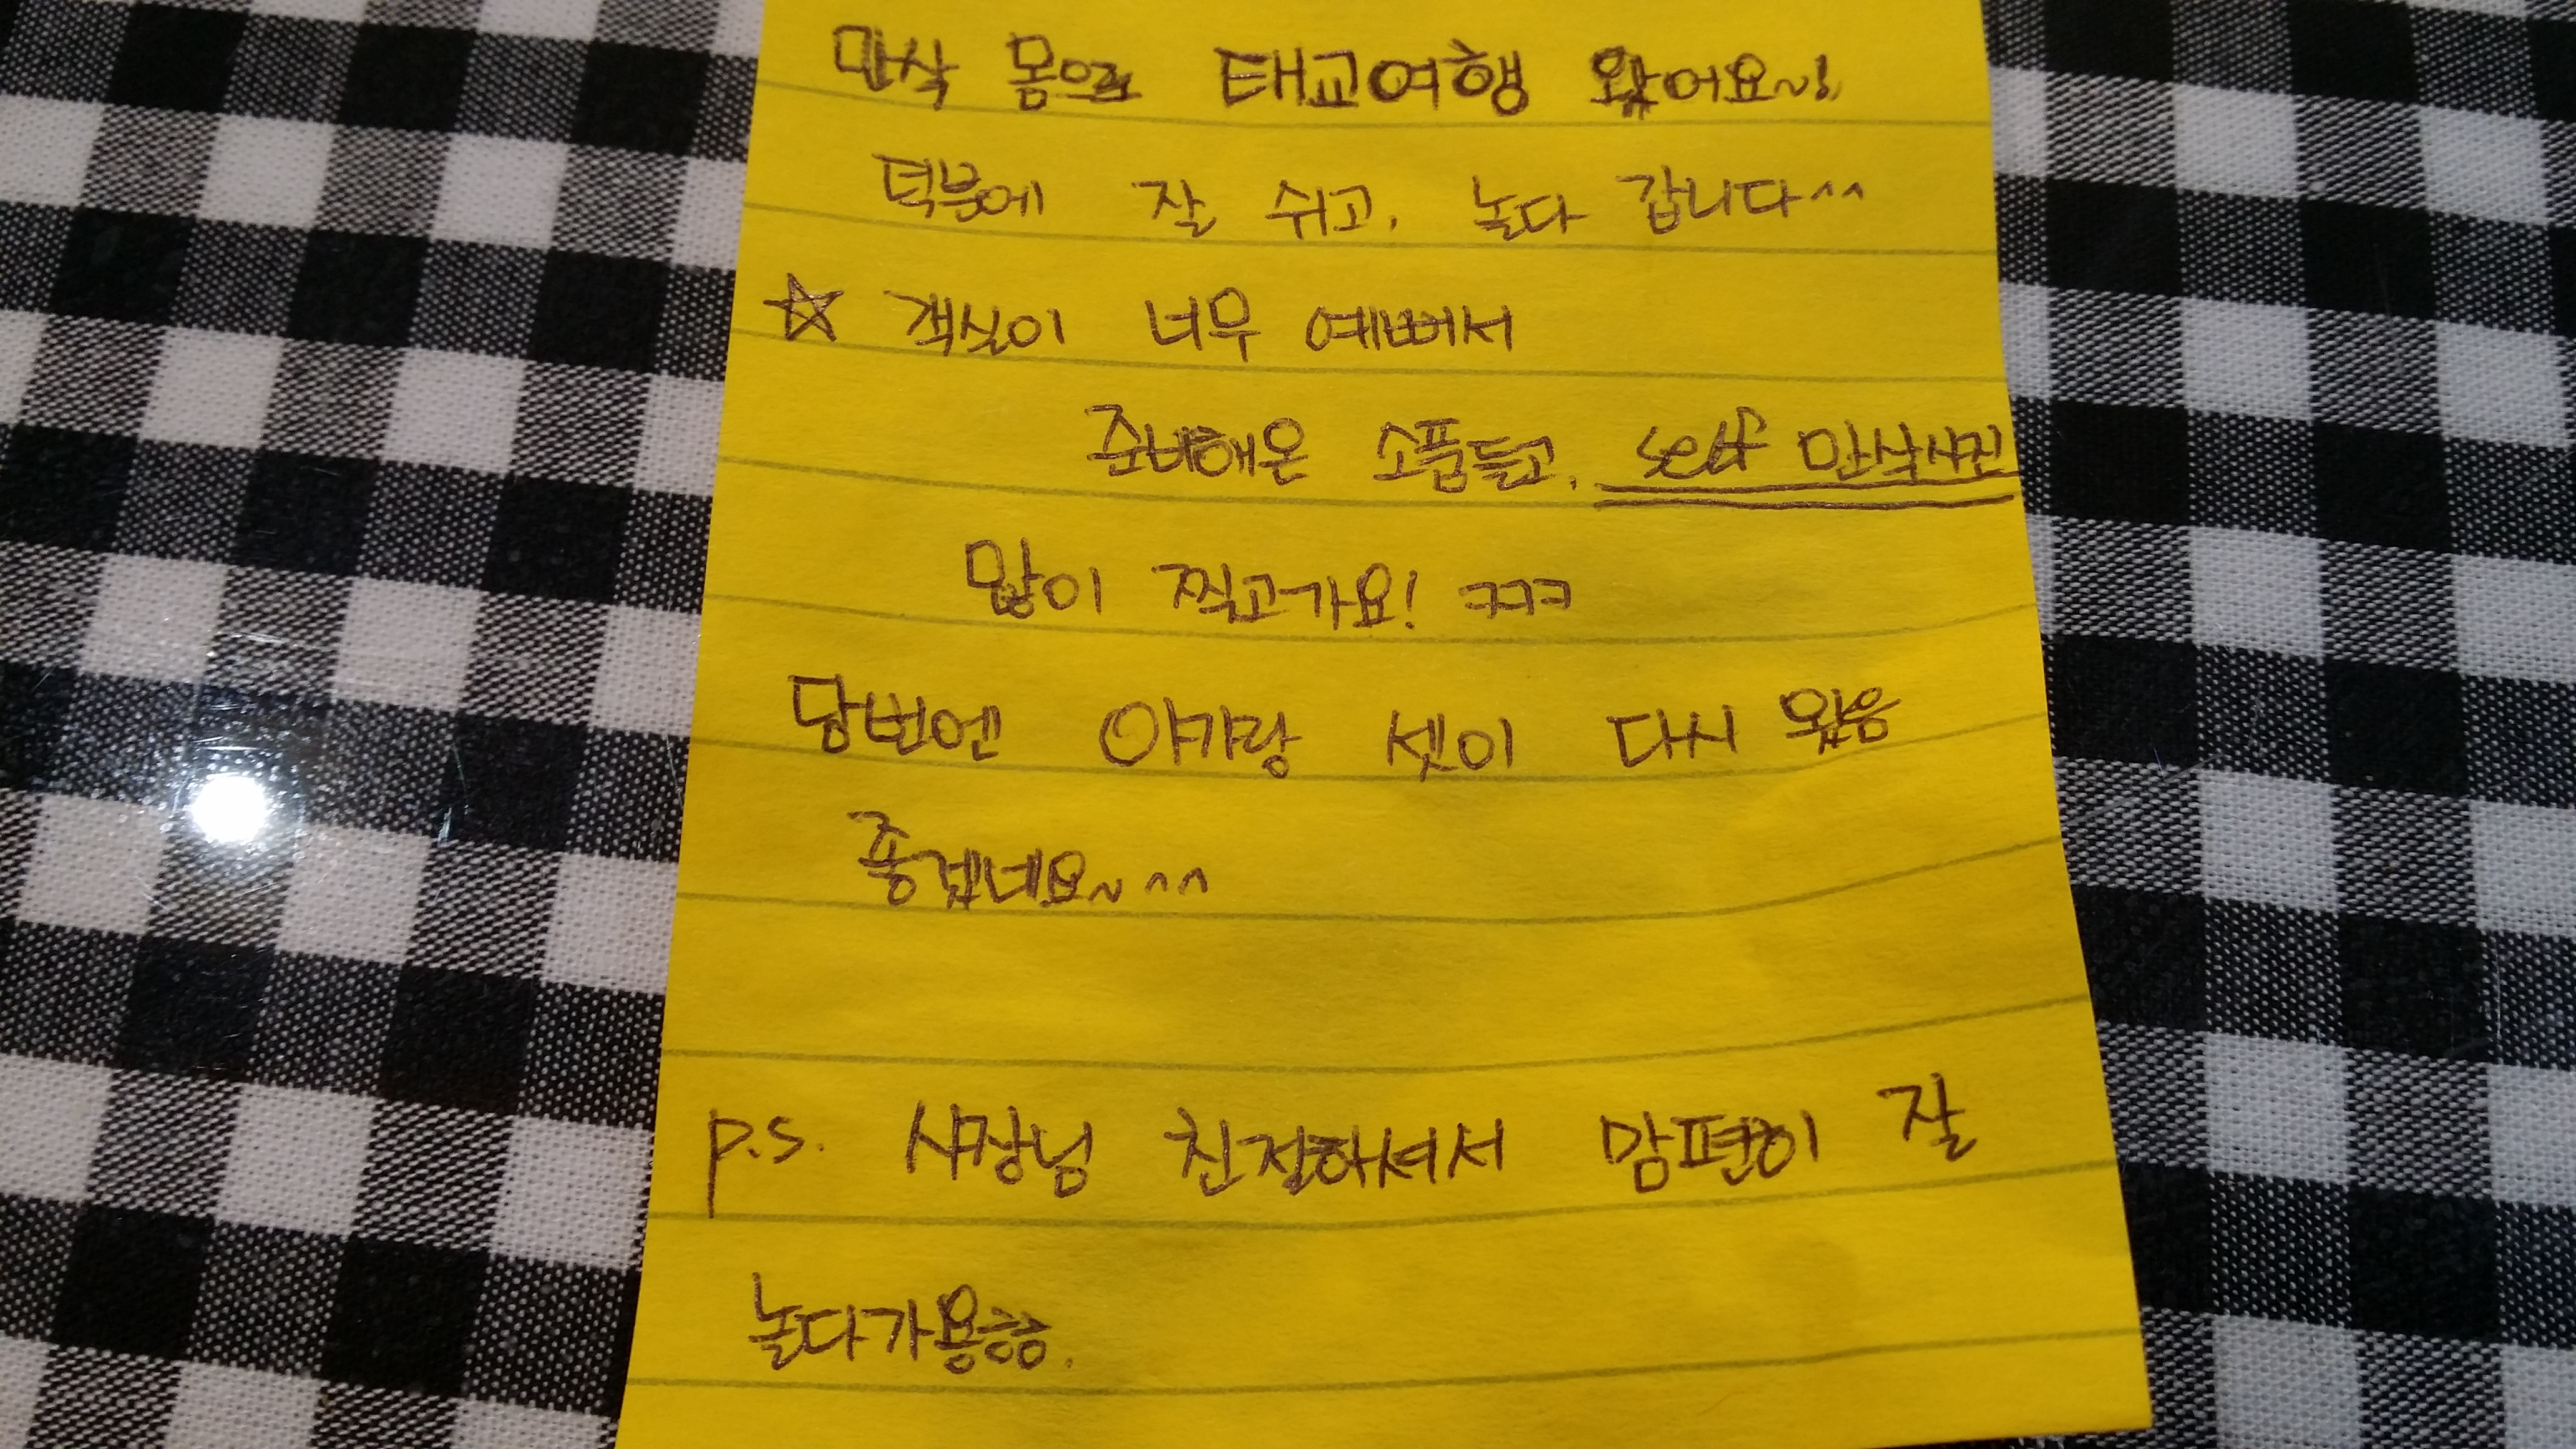 만삭 몸으로 태교여행 왔어요~!
덕분에 잘 쉬고, 놀다 갑니다^^
☆ 객실이 너무 예뻐서
준비해온 소품들고, self 만삭사진
많이 찍고가요! ㅋㅋㅋ
담번엔 아가랑 셋이 다시 왔음
좋겠네요~ ^^
p.s. 사장님 친절하셔서 맘편히 잘
놀다가용ㅎㅎ.